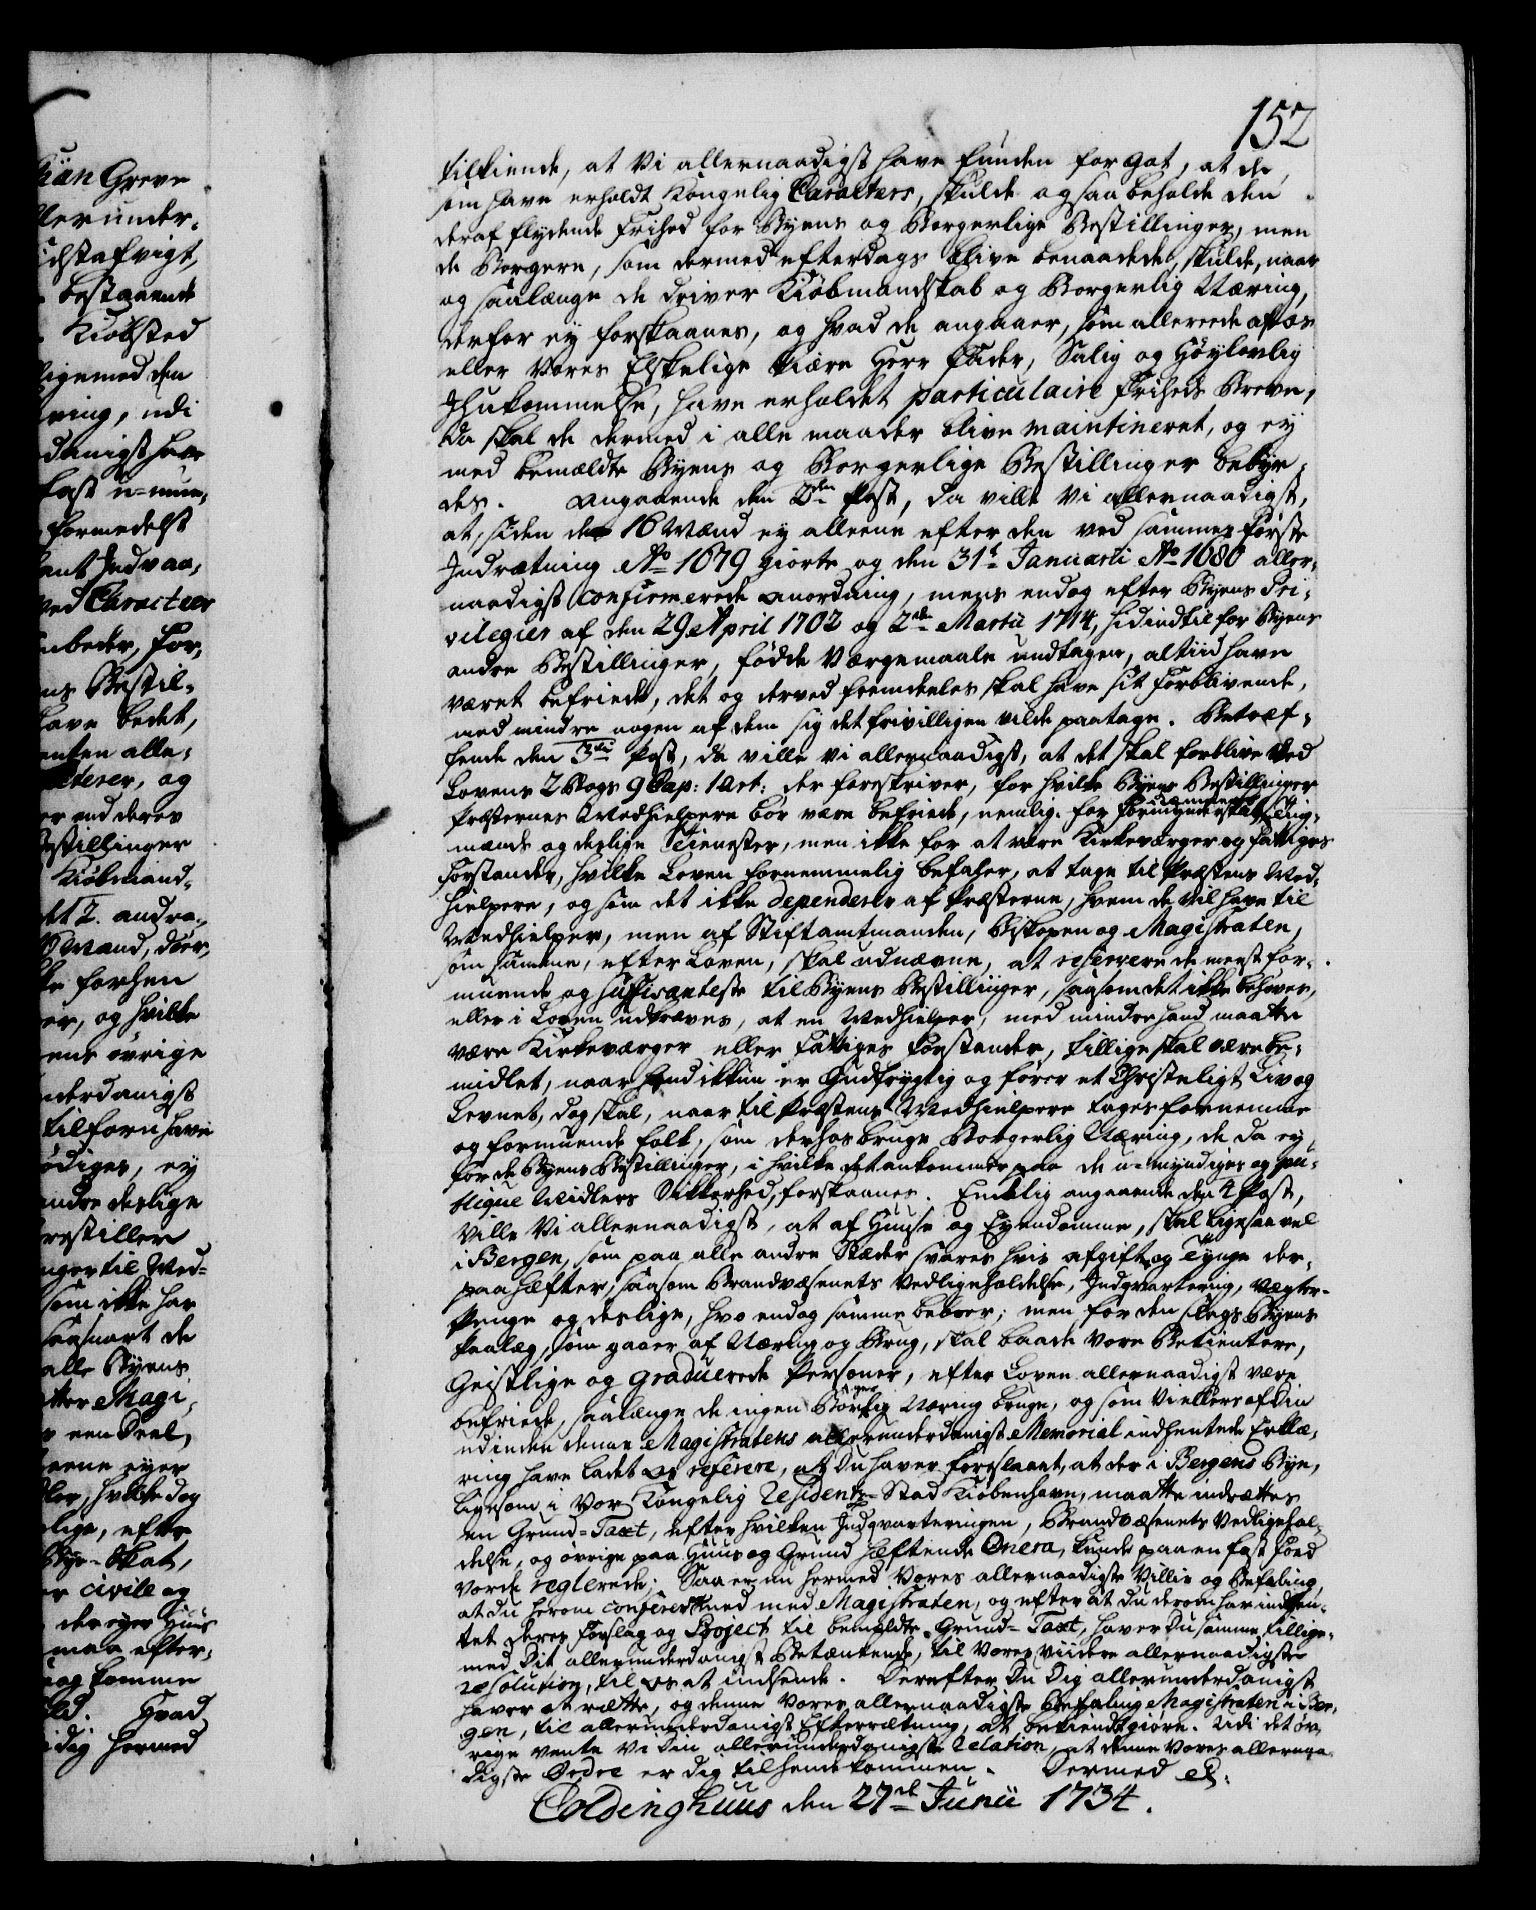 152
tilkiende, at Vi allernaadigst have funden for got, at de,
som have erholdt Kongelig Caracters, skulde ogsaa beholde den
deraf flydende Frihed for Byens og Borgerlige Bestillinger, men
de Borgere, som dermed efterdags blive benaadede, skulde, naar
og saalænge de driver Kiøbmandskab og Borgerlig Næring,
derfor ey forskaanes, og hvad de angaaer, som allereede af os
eller Vores Elskelige kiære Herr Fader, Salig og Høylovlig
Ihukommelse, have erholdet particulaire Friheds Breve,
da skal de dermed i alle maader blive maintineret, og ey
med bemældte Byens og Borgerlige Bestillinger bebyr-
des. Angaaende den 2den Post, da ville Vi allernaadigst,
at, siden de 16 Mænd ey alleene efter den ved sammes første
Indrætning Ao 1679 giorte og den 31t Januarii Ao 1680 aller-
naadigst confirmerede anordning, mens endog efter Byens Pri-
vilegier af den 29 April 1702 og 2den Martii 1714, hidindtil for Byens
andre Bestillinger, fødde Værgemaale undtagen, altiid have
været befriede, det og derved fremdeeles skal have sit Forblivende,
med mindre nogen af dem sig det frivilligen vilde paatage. Betref-
fende den 3die Post, da ville Vi allernaadigst, at det skal forblive ved
Lovens 2 Bogs 9 Cap: 1 Art: der foreskriver, for hvilke Byens Bestillinger
Præsternes Medhielpere bør være befriede, nemlig: for Formynderskab, Ting-
mænds og deslige Tienester, men ikke for at være Kirkeværger og Fattiges
Forstander, hvilke Loven fornemmelig befaler, at tage til Præstens Med-
hielpere, og som det ikke dependerer af Præsterne, hvem de vil have til
Medhielper, men af Stiftamtmanden, Biskopen og Magistraten,
som samme, efter Loven, skal udnævne, at reservere de meest for-
muende og suffisanteste til Byens Bestillinger, saasom det ikke behøves,
eller i Loven udkræves, at en Medhielper, med mindre hand maatte
være Kirkeværger eller Fattiges Forstander, tillige skal være be-
midlet, naar hand ikkun er Gudfrygtig og fører et Christeligt Liv og
Levnet, dog skal, naar til Præstens Medhielpere tages fornemme
og formuende folk, som derhos bruge Borgerlig Næring, de da ey
for de Byens Bestillinger, i hvilke det ankommer paa de u-myndiges og pu-
blique Midlers Sikkerhed, forskaanes. Endelig angaaende den 4 Post,
Ville Vi allernaadigst, at af Huuse og Eyendomme, skal ligesaavel
i Bergen, som paa alle andre Stæder svares hvis afgift og Tynge der-
paa hæfter, saasom Brandvæsenets Vedligeholdelse, Indqvartering, Vægter-
Penge og deslige, hvo endog samme beboer; men for den slags Byens
Paalæg, som gaaer af Næring og Brug, skal baade Vore Betientere,
Geistlige og graduerede Personer, efter Loven allernaadigst være
befriede, saalænge de ingen Borgerlig Næring bruge, og som Vi ellers af Din
udinden denne Magistratens allerunderdanigst Memorial indhentede Erklæ-
ring have ladet os referere, at Du haver foreslaaet, at der i Bergens Bye,
ligesom i Vor Kongelig Residentz-Stad Kiøbenhavn, maatte indrættes
en Grund-Taxt, efter hvilken Indqvarteringen, Brandvæsenets Vedligehol-
delse, og øvrige paa Huus og Grund hæftende Onera, kunde paa en fast foed
vorde reglerede; Saa er nu hermed Vores allernaadigste Villie og Befaling,
at Du herom conferer med Magistraten, og efter at Du derom har indhen-
tet deres Forslag og Project til bemeldte Grund-Taxt, haver Du samme tillige-
med Dit allerunderdanigst Betænkende, til Vores viidere allernaadigste
resolution, til os at indsende. Derefter Du Dig allerunderdanigst
haver at rætte, og denne Vores allernaadigste Befaling Magistraten i Ber-
gen, til allerunderdanigst Efterretning, at bekiendtgiøre. Udi det øv-
rige vente Vi Din allerunderdanigste Relation, at denne Vores allernaa-
digste Ordre er Dig tilhændekommen. Dermed etc:
Coldinghuus den 27de Junii 1734.